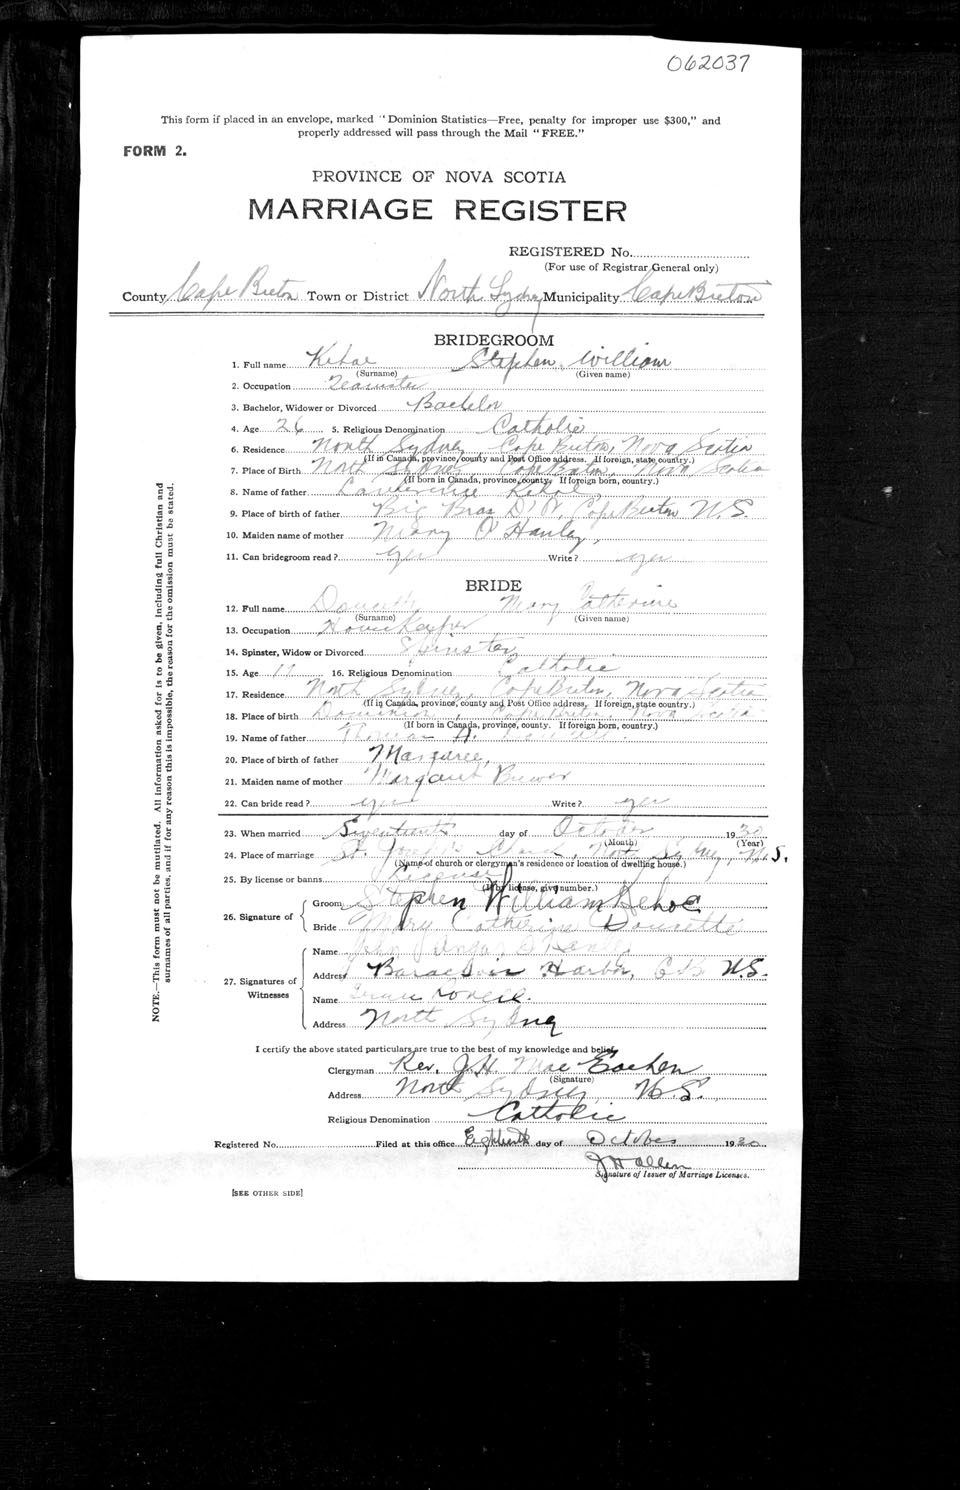 062037
This form if placed in an envelope, marked "Dominion Statistics—Free, penalty for improper use $300," and
properly addressed will pass through the Mail "FREE."
FORM 2.
PROVINCE OF NOVA SCOTIA
MARRIAGE REGISTER
REGISTERED No.
(For use of Registrar General only)
County Cape Breton Town or District North Sydney Municipality Cape Breton
BRIDEGROOM
1. Full name Kehoe Stephen William
(Surname) (Given name)
2. Occupation Teamster
3. Bachelor, Widower or Divorced Bachelor
4. Age 26 5. Religious Denomination Catholic
6. Residence North Sydney, Cape Breton, Nova Scotia
(If in Canada, province, county and Post Office address. If foreign, state country.)
7. Place of Birth North Sydney Cape Breton, Nova Scotia
(If born in Canada, province, county. If foreign born, country.)
8. Name of father Kehoe,
9. Place of birth of father Big Bras D'Or, Cape Breton N.S.
10. Maiden name of mother Mary O'Hanley,
11. Can bridegroom read? yes Write? yes
BRIDE
12. Full name Mary Catherine
(Surname) (Given name)
13. Occupation House Keeper
14. Spinster, Widow or Divorced Spinster
15. Age 16. Religious Denomination Catholic
17. Residence North Sydney, Cape Breton, Nova Scotia
(If in Canada, province, county and Post Office address. If foreign, state country.)
18. Place of birth Dominion, Cape Breton Nova Scotia
(If born in Canada, province, county. If foreign born, country.)
19. Name of father Thomas H.
20. Place of birth of father Margaree,
21. Maiden name of mother Margaret Brewer
22. Can bride read? yes Write? yes
23. When married Seventeenth day of October 1930
(Month) (Year)
24. Place of marriage St. Joseph's Church, North Sydney, N.S.
(Name of church or clergyman's residence or location of dwelling house.)
25. By license or banns License
(If by license, give number.)
26. Signature of
Groom Stephen William Kehoe
Bride Mary Catherine Doucette
27. Signatures of Witnesses
Name John
Address Barachois Harbor, C.B. N.S.
Name
Address North Sydney
I certify the above stated particulars are true to the best of my knowledge and belief.
Clergyman Rev. J.H. Mac Eachen
(Signature)
Address North Sydney, N.S.
Religious Denomination Catholic
Registered No. Filed at this office Eighteenth day of October 1930
J H Allen
Signature of Issuer of Marriage Licenses.
[SEE OTHER SIDE]
NOTE.—This form must not be mutilated. All information asked for is to be given, including full Christian and
surnames of all parties, and if for any reason this is impossible, the reason for the omission must be stated.